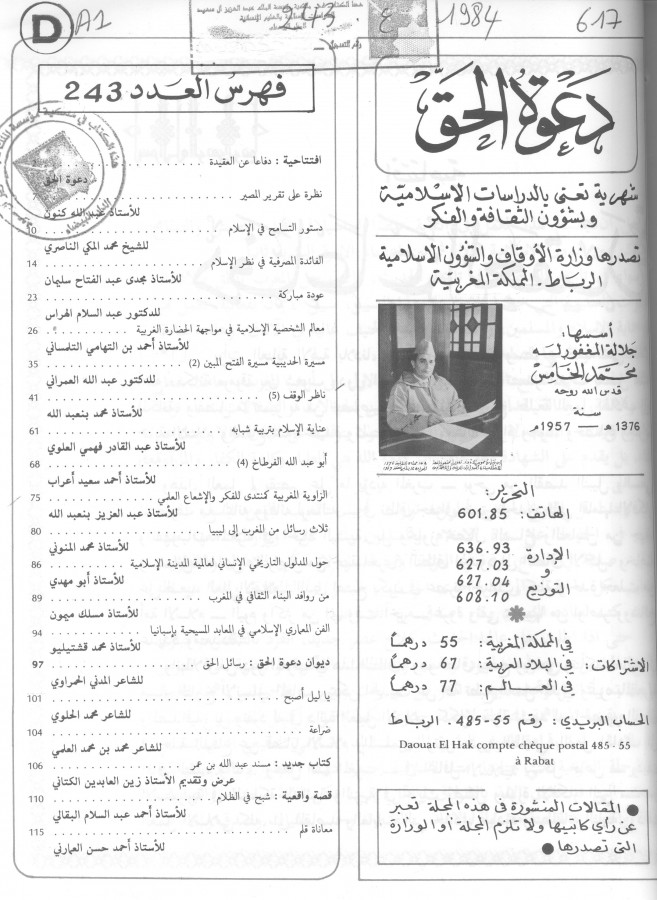 D A1
1984
617
دعوة الحق
شهرية تعنى بالدراسات الإسلامية
وبشؤون الثقافة والفكر
تصدرها وزارة الأوقاف والشؤون الإسلامية
الرباط . المملكة المغربية
أسسها :
جلالة المغفور له
محمد الخامس
قدس الله روحه
سنة
1376 هـ — 1957 م
التحرير :
الهاتف : 601.85
الإدارة و التوزيع
636.93
627.03
627.04
608.10
الاشتراكات :
في المملكة المغربية : 55 درهما
في البلاد العربية : 67 درهما
في العالم : 77 درهما
الحساب البريدي : رقم 55-485 . الرباط
Daouat El Hak compte chèque postal 485 - 55
à Rabat
● المقالات المنشورة في هذه المجلة تعبر
عن رأي كاتبيها ولا تلزم المجلة أو الوزارة
التي تصدرها ●
فهرس العدد 243
افتتاحية : دفاعا عن العقيدة
دعوة الحق
نظرة على تقرير المصير
للأستاذ عبد الله كنون
دستور التسامح في الإسلام 10
للشيخ محمد المكي الناصري
الفائدة المصرفية في نظر الإسلام 14
للأستاذ مجدى عبد الفتاح سليمان
عودة مباركة 23
للدكتور عبد السلام الهراس
معالم الشخصية الإسلامية في مواجهة الحضارة الغربية 26
للأستاذ أحمد بن التهامي التلمساني
مسيرة الحديبية مسيرة الفتح المبين (2) 35
للدكتور عبد الله العمراني
ناظر الوقف (5) 41
للأستاذ محمد بنعبد الله
عناية الإسلام بتربية شبابه 61
للأستاذ عبد القادر فهمي العلوي
أبو عبد الله الفرطاخ (4) 68
للأستاذ أحمد سعيد أعراب
الزاوية المغربية كمنتدى للفكر والإشعاع العلمي 75
للأستاذ عبد العزيز بنعبد الله
ثلاث رسائل من المغرب إلى ليبيا 80
للأستاذ محمد المنوني
حول المدلول التاريخي الإنساني لعالمية المدينة الإسلامية 86
للأستاذ أبو مهدي
من روافد البناء الثقافي في المغرب 89
للأستاذ مسلك ميمون
الفن المعماري الإسلامي في المعابد المسيحية بإسبانيا 94
للأستاذ محمد قشتيليو
ديوان دعوة الحق : رسائل الحق 97
للشاعر المدني الحمراوي
يا ليل أصبح 101
للشاعر محمد الحلوي
ضراعة 104
للشاعر محمد بن محمد العلمي
كتاب جديد : مسند عبد الله بن عمر 106
عرض وتقديم الأستاذ زين العابدين الكتاني
قصة واقعية : شبح في الظلام 110
للأستاذ أحمد عبد السلام البقالي
معاناة قلم 115
للأستاذ أحمد حسن العمارني